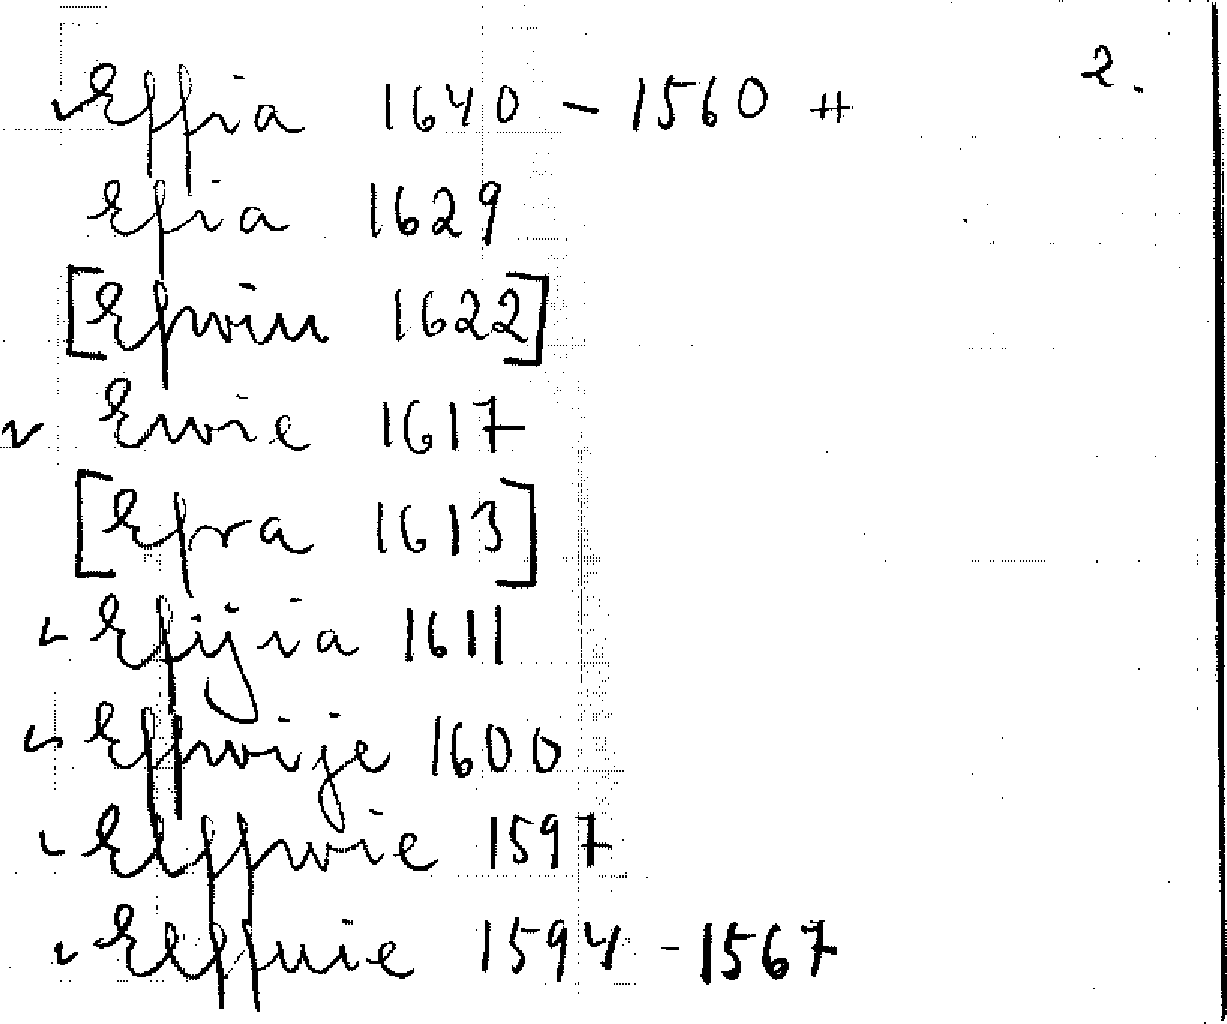 2.
Effia 1640 - 1560 #
Efia 1629
[Efwin 1622]
Ewie 1617
[Efra 1613]
Efijia 1611
Effwije 1600
Elffwie 1597
Elffuie 1594 - 1567